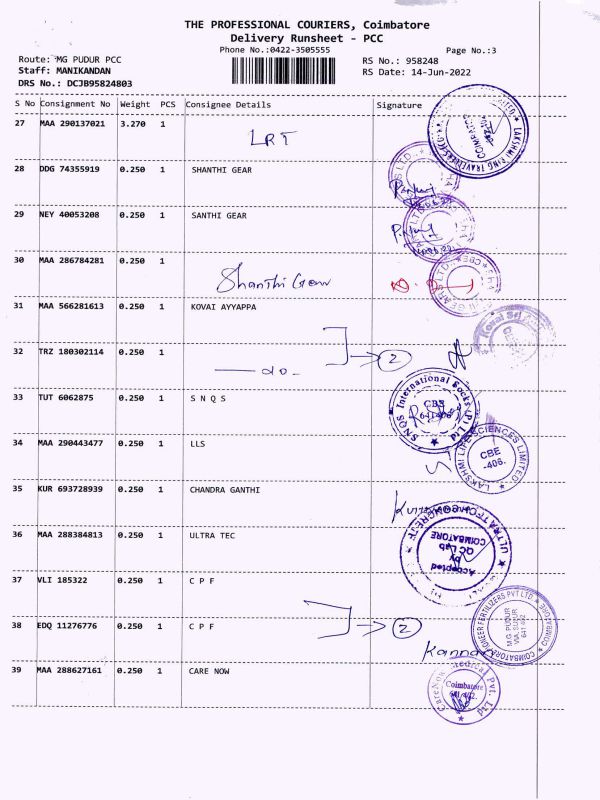 THE PROFESSIONAL COURIERS, Coimbatore
Delivery Runsheet - PCC
Phone No.:0422-3505555
Page No.:3
Route: MG PUDUR PCC
RS No.: 958248
Staff: MANIKANDAN
RS Date: 14-Jun-2022
DRS No.: DCJB95824803
S No Consignment No Weight PCS Consignee Details Signature
27 MAA 290137021 3.270 1 LRT
28 DDG 74355919 0.250 1 SHANTHI GEAR
29 NEY 40053208 0.250 1 SANTHI GEAR
30 MAA 286784281 0.250 1 Shanthi Gear
31 MAA 566281613 0.250 1 KOVAI AYYAPPA
32 TRZ 180302114 0.250 1 do - 2
33 TUT 6062875 0.250 1 S N Q S
SNQS International Socks (P) Ltd
CBE
641406
34 MAA 290443477 0.250 1 LLS
LAKSHMI LIFE SCIENCES LIMITED
CBE
-406.
35 KUR 693728939 0.250 1 CHANDRA GANTHI
36 MAA 288384813 0.250 1 ULTRA TEC
ULTRA TECH CONCRETE
Accepted
by
QC Lab
COIMBATORE
37 VLI 185322 0.250 1 C P F
38 EDQ 11276776 0.250 1 C P F 2
COIMBATORE PIONEER FERTILIZERS PVT LTD
M.G. PUDUR
VIA SULUR
641 402
Kannan
39 MAA 288627161 0.250 1 CARE NOW
CareNow Medical Pvt. Ltd
Coimbatore